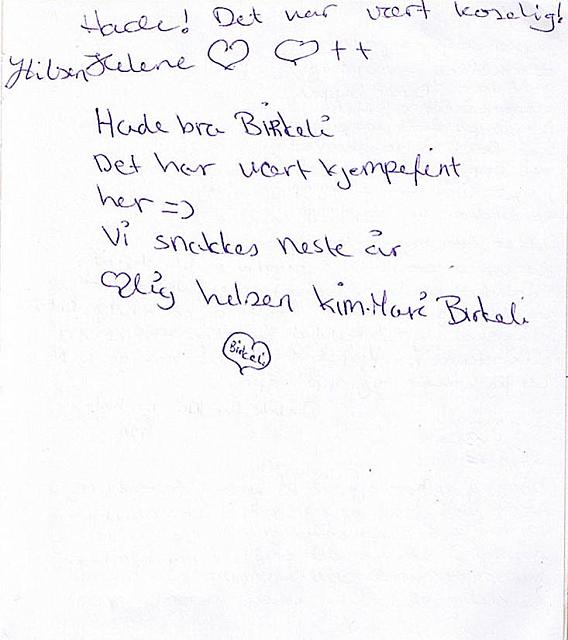 Hade! Det har vært koselig!
Hilsen Helene ♡ ♡ ++
Hade bra Birkeli
Det har vært kjempefint
her =)
Vi snakkes neste år
♡lig helsen Kim.Mari Birkeli
Birkeli